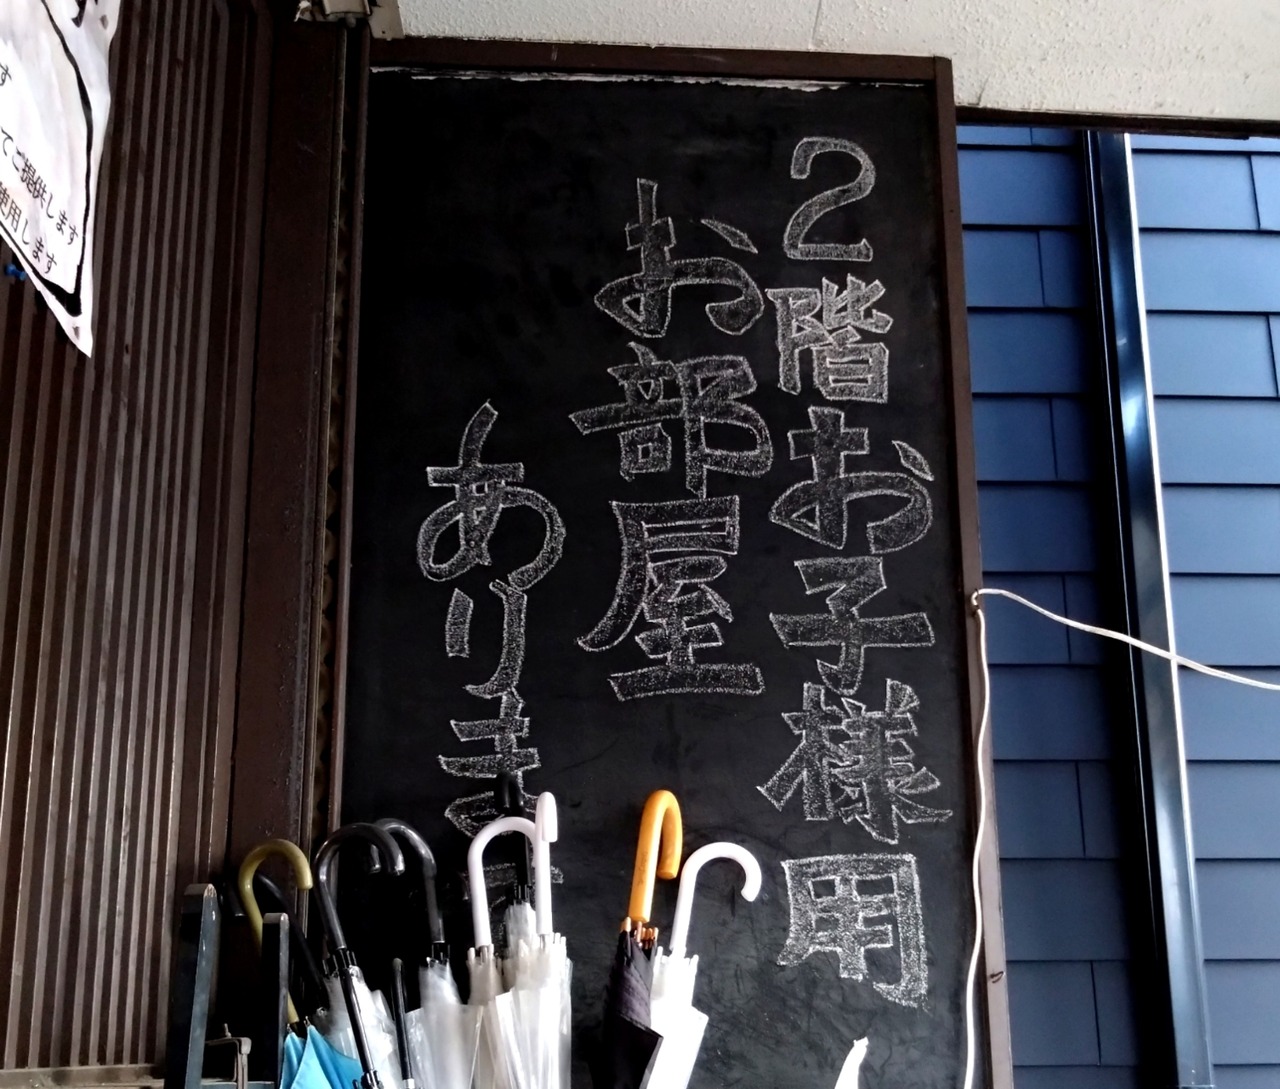 2階お子様用
お部屋
ありま
す
てご提供します
使用します